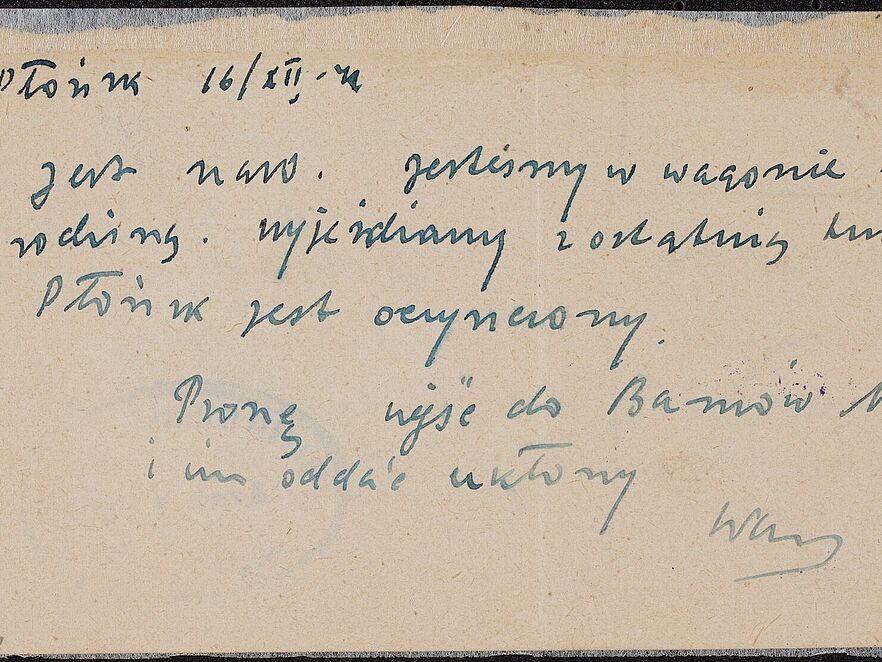 Płońsk 16/XII.42
jest nas. jesteśmy w wagonie
rodziną. wyjeżdżamy z ostatnią
Płońsk jest oczyszczony.
Proszę wyjść do Bamów
i im oddać ukłony